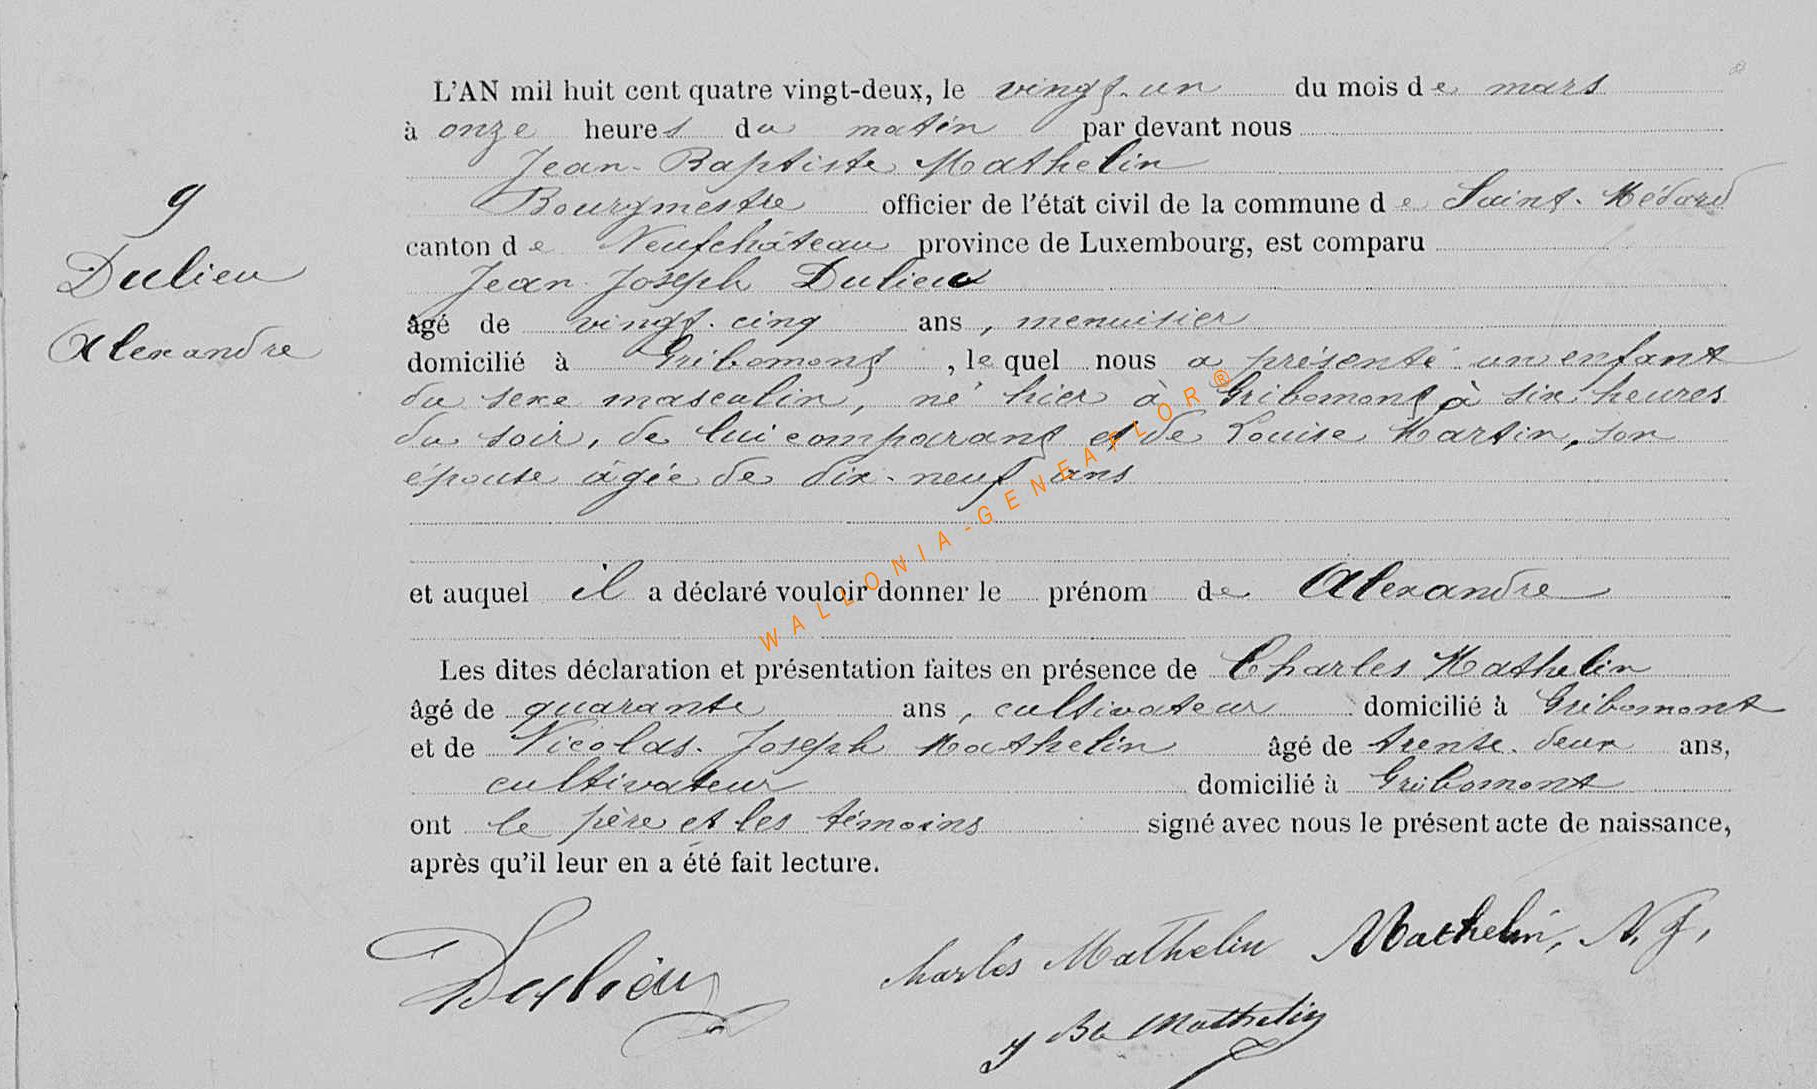 9
Dulieu
Alexandre
L'AN mil huit cent quatre vingt-deux, le vingt-un du mois de mars
à onze heures du matin par devant nous
Jean-Baptiste Mathelin
Bourgmestre officier de l'état civil de la commune de Saint-Médard
canton de Neufchâteau province de Luxembourg, est comparu
Jean Joseph Dulieu
âgé de vingt-cinq ans, menuisier
domicilié à Gribomont, lequel nous a présenté un enfant
du sexe masculin, né hier à Gribomont à six heures
du soir, de lui comparant et de Louise Martin, son
épouse âgée de dix-neuf ans
et auquel il a déclaré vouloir donner le prénom de Alexandre
Les dites déclaration et présentation faites en présence de Charles Mathelin
âgé de quarante ans, cultivateur domicilié à Gribomont
et de Nicolas-Joseph Mathelin âgé de trente-deux ans,
cultivateur domicilié à Gribomont
ont le père et les témoins signé avec nous le présent acte de naissance,
après qu'il leur en a été fait lecture.
Dulieu Charles Mathelin Mathelin, N. J,
J Bte Mathelin
WALLONIA-GENEAFLOR®